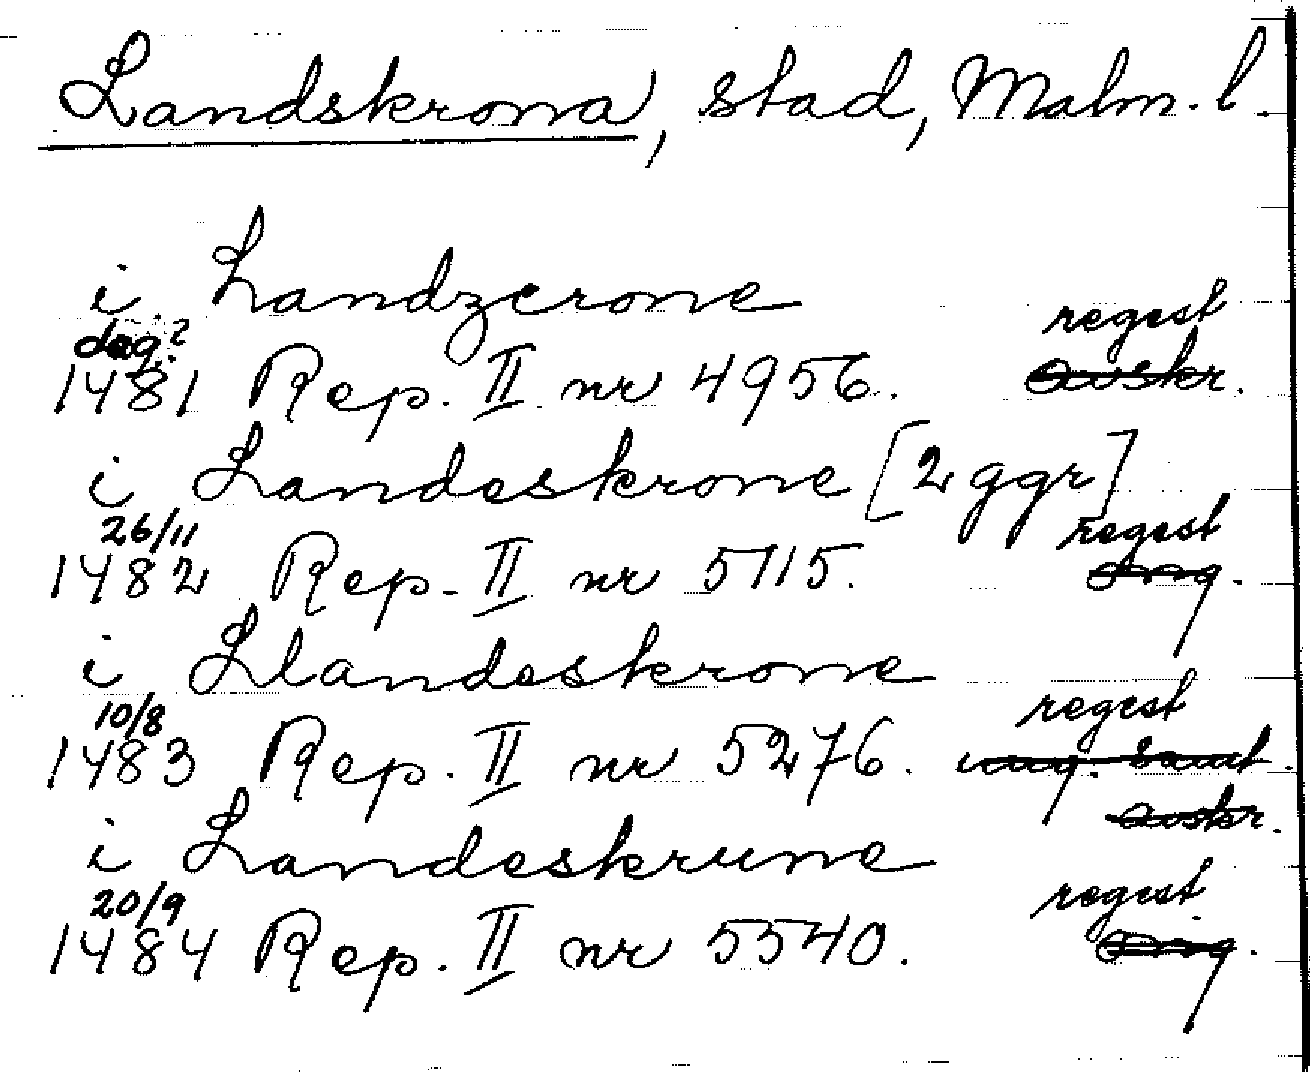 Landskrona, stad, Malm. l.
i Landzcrone
dag? regest
1481 Rep. II nr 4956. avskr.
i Landeskrone [2 ggr]
26/11 regest
1482 Rep. II nr 5115. orig.
i Llandeskrone
10/8 regest
1483 Rep. II nr 5276. ung. samt.
avskr.
i Landeskrune
20/9 regest
1484 Rep. II nr 5540. orig.